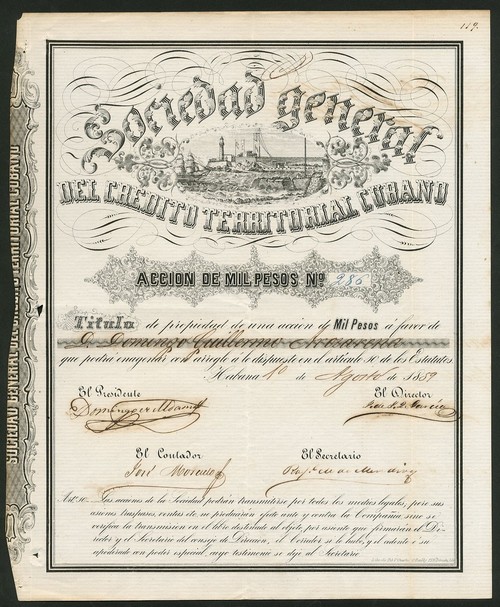 159.
Sociedad general
DEL CREDITO TERRITORIAL CUBANO
ACCION DE MIL PESOS Nº 286
Titulo de propiedad de una accion de Mil Pesos á favor de
D. Domingo Guillermo Arozarena
que podrá enagenar con arreglo á lo dispuesto en el artículo 10 de los Estatutos.
Habana 1º de Agosto de 1859
El Presidente
El Director
Domingo
El Contador
El Secretario
José Morales
Art. 10. Las acciones de la Sociedad podrán transmitirse por todos los medios legales, pero sus
uniones traspasos, ventas etc. no producirán efecto ante y contra la Compañia sino se
verifica la transmision en el libro destinado al objeto, por asiento que firmarán el Di-
rector y el Secretario del consejo de Direccion, el Corredor si lo hubo, y el cedente ó su
apoderado con poder especial, cuyo testimonio se deje al Secretario.
SOCIEDAD GENERAL DEL CREDITO TERRITORIAL CUBANO